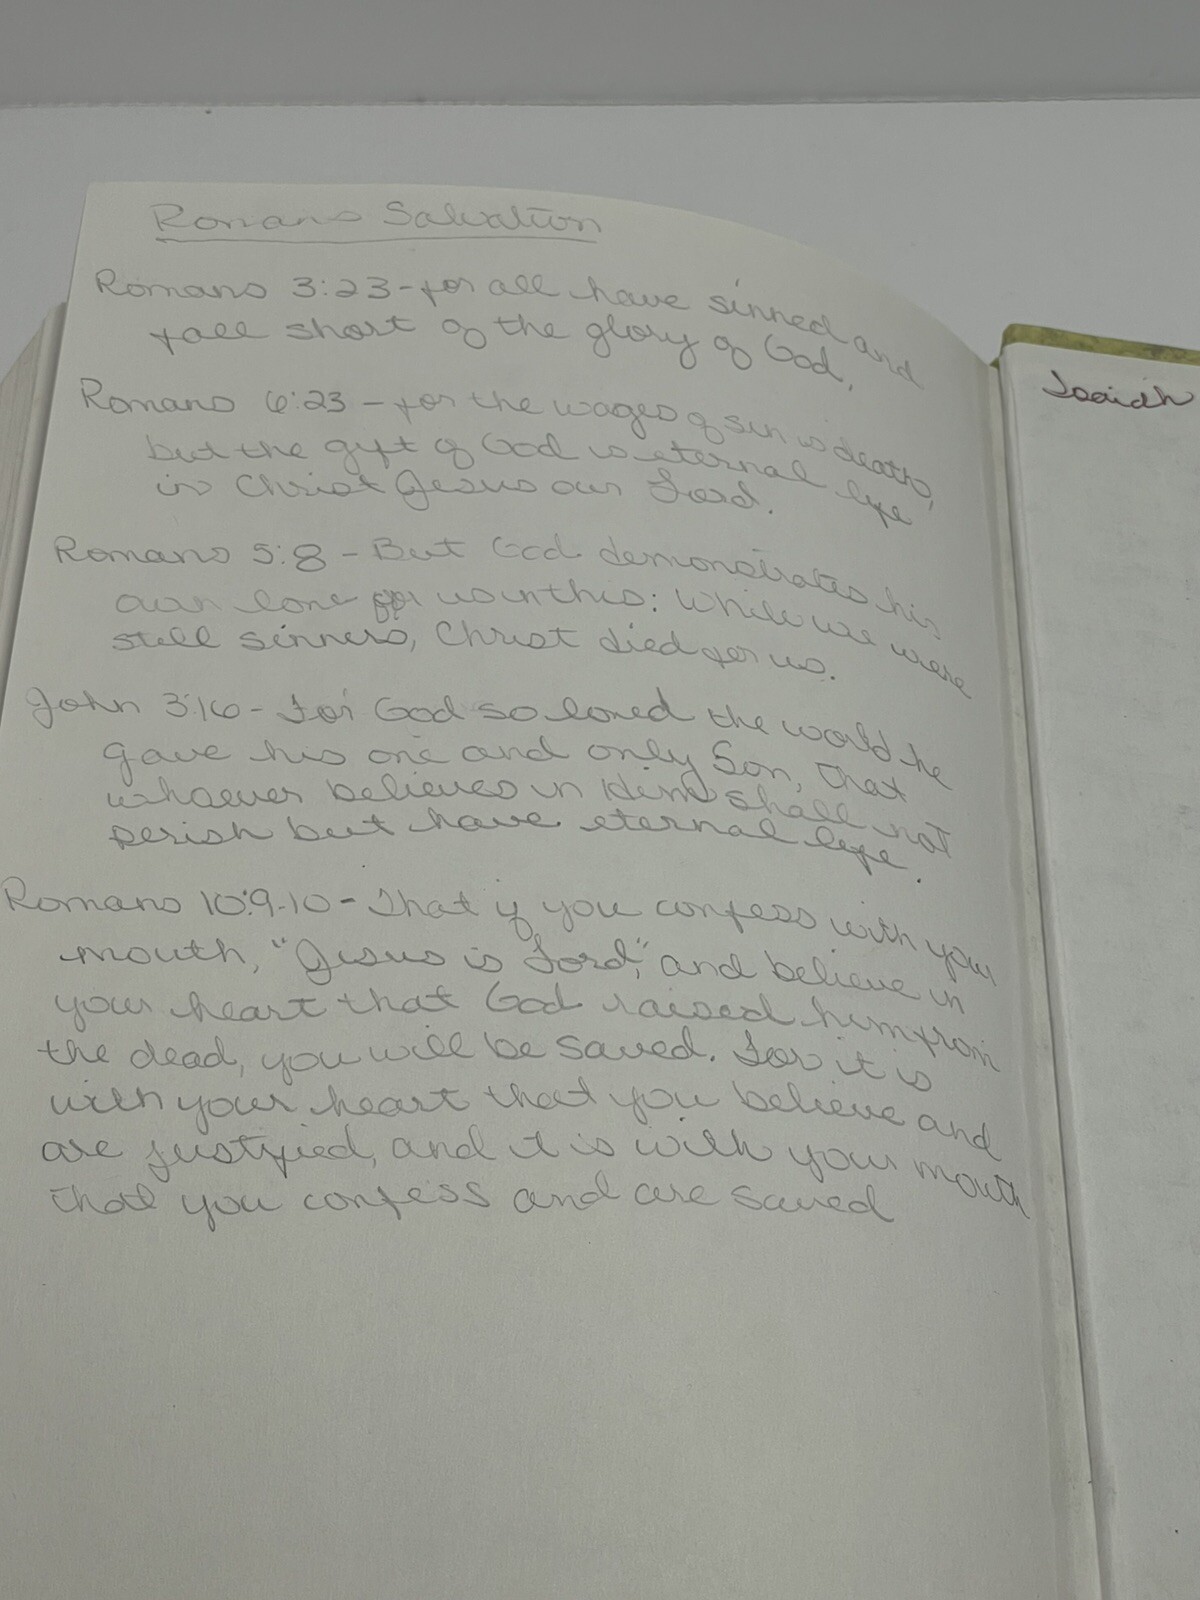 Romans Salvation
Romans 3:23 - for all have sinned and
fall short of the glory of God,
Romans 6:23 - for the wages of sin is death,
but the gift of God is eternal life
in Christ Jesus our Lord.
Romans 5:8 - But God demonstrates his
own love for us in this: While we were
still sinners, Christ died for us.
John 3:16 - For God so loved the world he
gave his one and only Son, that
whoever believes in Him shall not
perish but have eternal life.
Romans 10:9-10 - That if you confess with your
mouth, "Jesus is Lord," and believe in
your heart that God raised him from
the dead, you will be saved. For it is
with your heart that you believe and
are justified, and it is with your mouth
that you confess and are saved
Isaiah